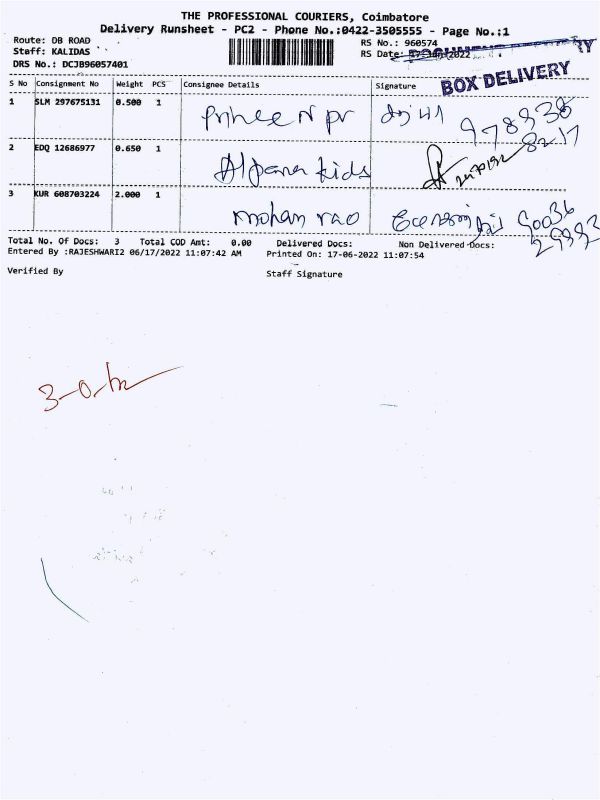 THE PROFESSIONAL COURIERS, Coimbatore
Delivery Runsheet - PC2 - Phone No.:0422-3505555 - Page No.:1
Route: DB ROAD
RS No.: 960574
Staff: KALIDAS
RS Date: 17-Jun-2022
DRS No.: DCJB96057401
BOX DELIVERY
S No Consignment No Weight PCS Consignee Details Signature
1 SLM 297675131 0.500 1
2 EDQ 12686977 0.650 1 Alpana kids
3 KUR 608703224 2.000 1 mohan rao
Total No. Of Docs: 3 Total COD Amt: 0.00 Delivered Docs: Non Delivered Docs:
Entered By :RAJESHWARI2 06/17/2022 11:07:42 AM Printed On: 17-06-2022 11:07:54
Verified By Staff Signature